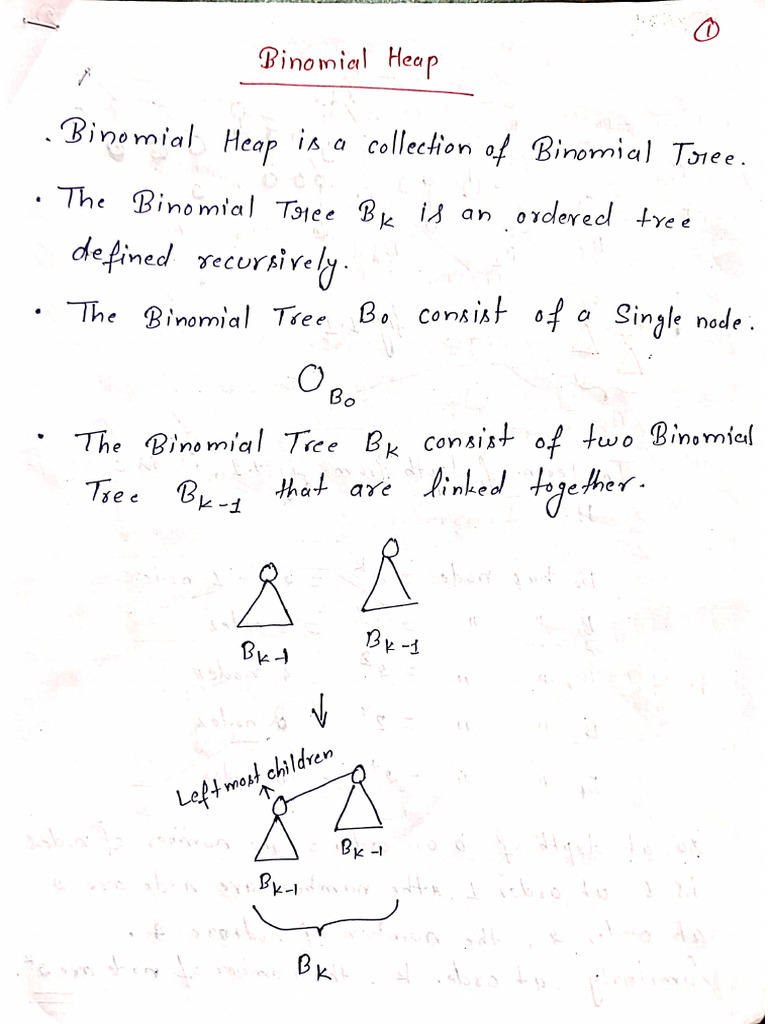 1
Binomial Heap
. Binomial Heap is a collection of Binomial Tree.
• The Binomial Tree Bk is an ordered tree
defined recursively.
• The Binomial Tree B0 consist of a Single node.
B0
• The Binomial Tree Bk consist of two Binomial
Tree Bk-1 that are linked together.
Bk-1 Bk-1
↓
Left most children
Bk-1
Bk-1
Bk